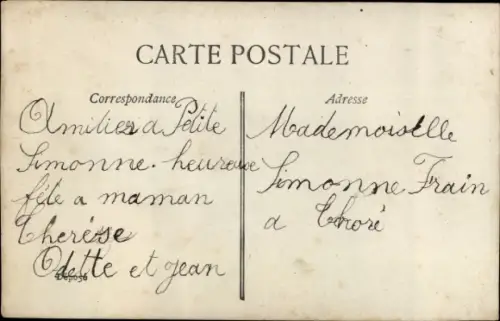 CARTE POSTALE
Correspondance
Amitiés a Petite
Simonne. heureuse
fête a maman
Therése
Odette et jean
Adresse
Mademoiselle
Simonne Frain
a Thoré